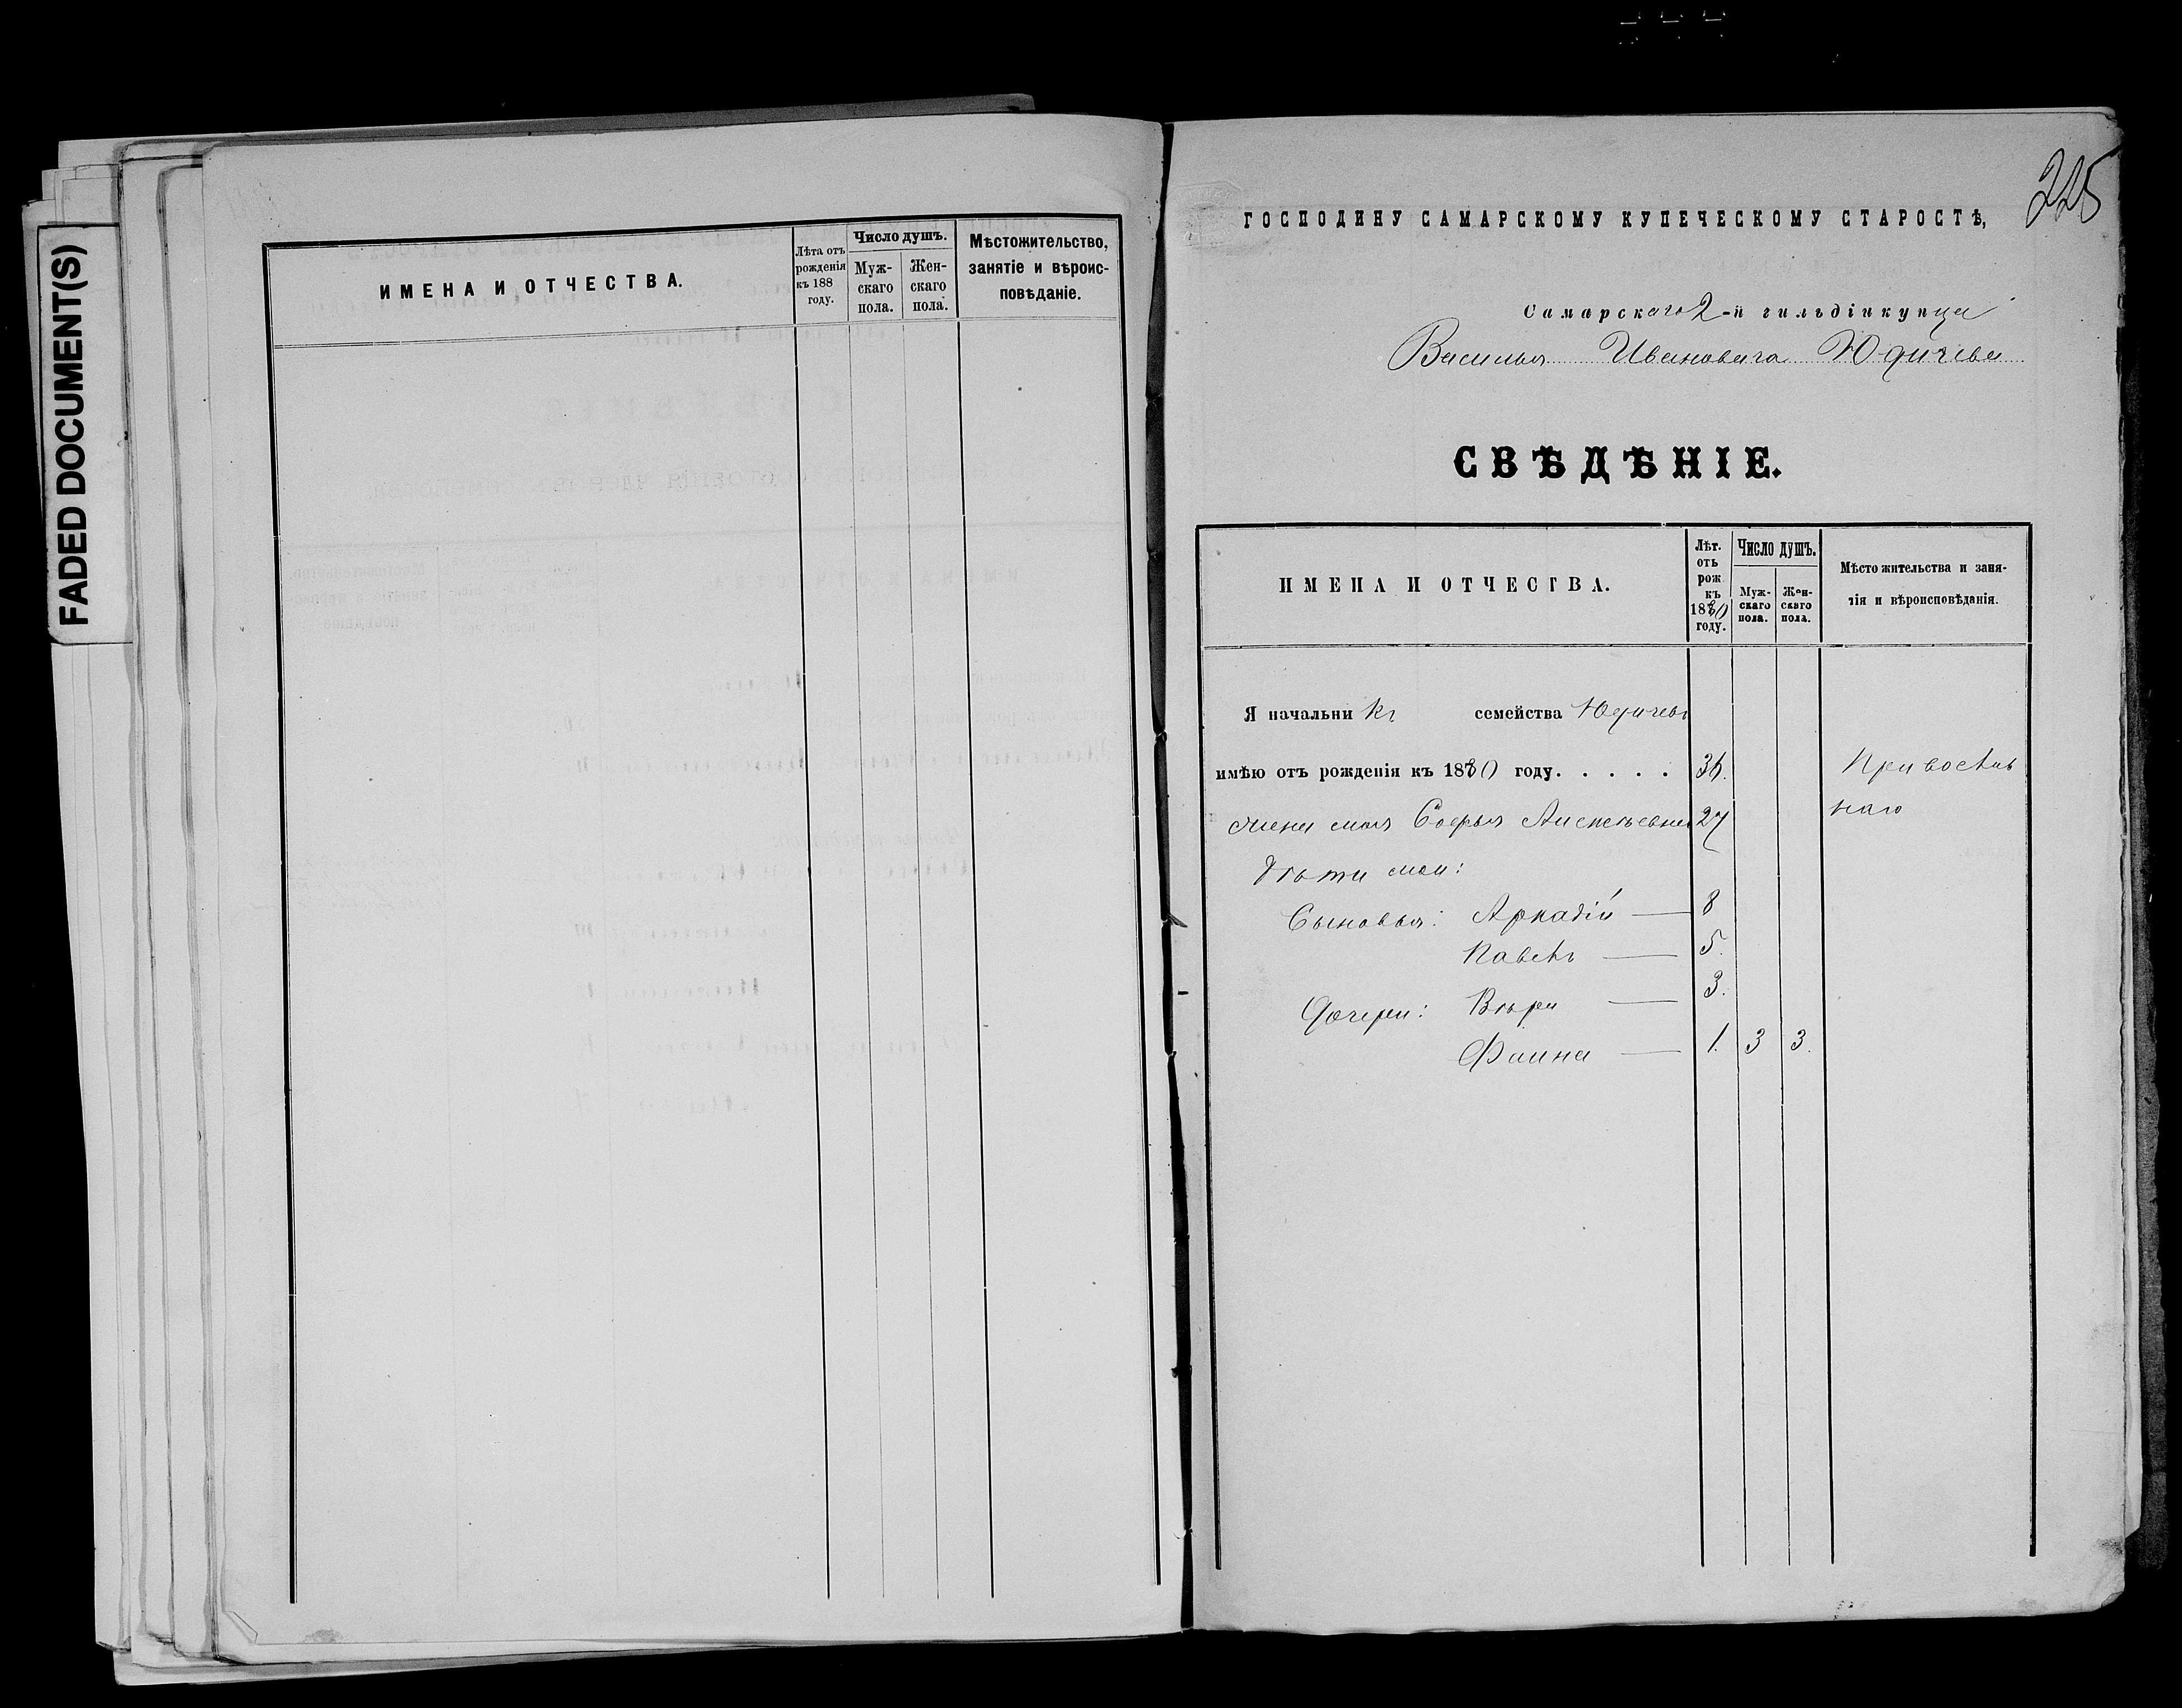 FADED DOCUMENT(S)
ИМЕНА И ОТЧЕСТВА.
Лѣта отъ рожденія къ 188 году.
Число душъ.
Мужскаго пола.
Женскаго пола.
Мѣстожительство, занятіе и вѣроисповѣданіе.
225
ГОСПОДИНУ САМАРСКОМУ КУПЕЧЕСКОМУ СТАРОСТѢ,
Самарскаго 2-й гильдіи купца
Василья Ивановича Юдичева
СВѢДѢНІЕ.
ИМЕНА И ОТЧЕСТВА.
Лѣт. отъ рож. къ 1880 году.
Число душъ.
Мужскаго пола.
Женскаго пола.
Мѣсто жительства и занятія и вѣроисповѣданія.
Я начальникъ семейства Юдичевъ
имѣю отъ рожденія къ 1880 году. . . . . 36.
жена моя Софья 27
Дѣти мои:
Сыновья: Аркадій — 8
Павелъ — 5.
Дочери: Вѣра — 3.
Фаина — 1. 3 3.